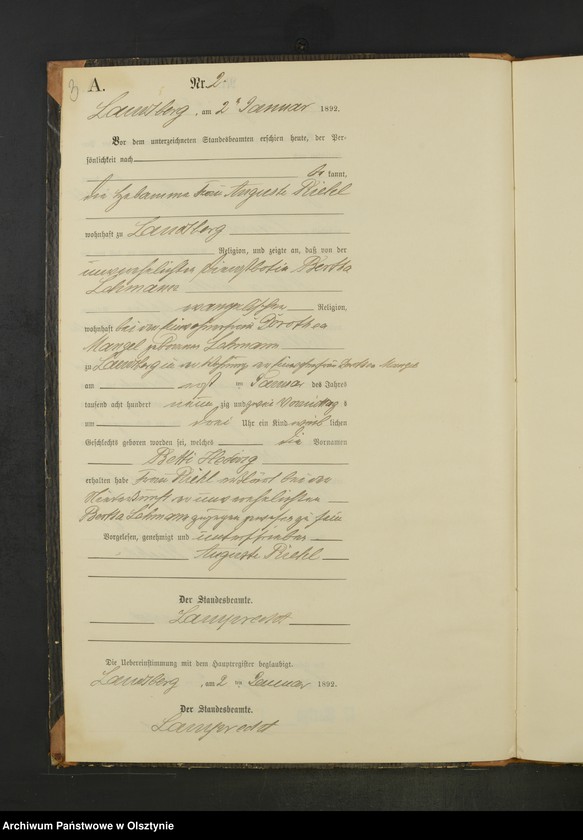 3
A. Nr. 2.
Landsberg, am 2. Januar 1892.
Vor dem unterzeichneten Standesbeamten erschien heute, der Per-
sönlichkeit nach
be kannt,
die Hebamme Frau Auguste Riehl
wohnhaft zu Landsberg
Religion, und zeigte an, daß von der
unverehelichten Dienstbotin Bertha
Lehmann
evangelischer Religion,
wohnhaft bei der Dorothea
Mangel geborenen Lehmann
zu Landsberg in der Wohnung der Dorothea Mangel
am ersten Januar des Jahres
tausend acht hundert neun zig und zwei Vormittag s
um drei Uhr ein Kind weib lichen
Geschlechts geboren worden sei, welches die Vornamen
Betti Hedwig
erhalten habe Frau Riehl erklärt bei der
Niederkunft der unverehelichten
Bertha Lehmann zugegen gewesen zu sein
Vorgelesen, genehmigt und unterschrieben
Auguste Riehl
Der Standesbeamte.
Lamprecht
Die Uebereinstimmung mit dem Hauptregister beglaubigt.
Landsberg, am 2 ten Januar 1892.
Der Standesbeamte.
Lamprecht
Archiwum Państwowe w Olsztynie